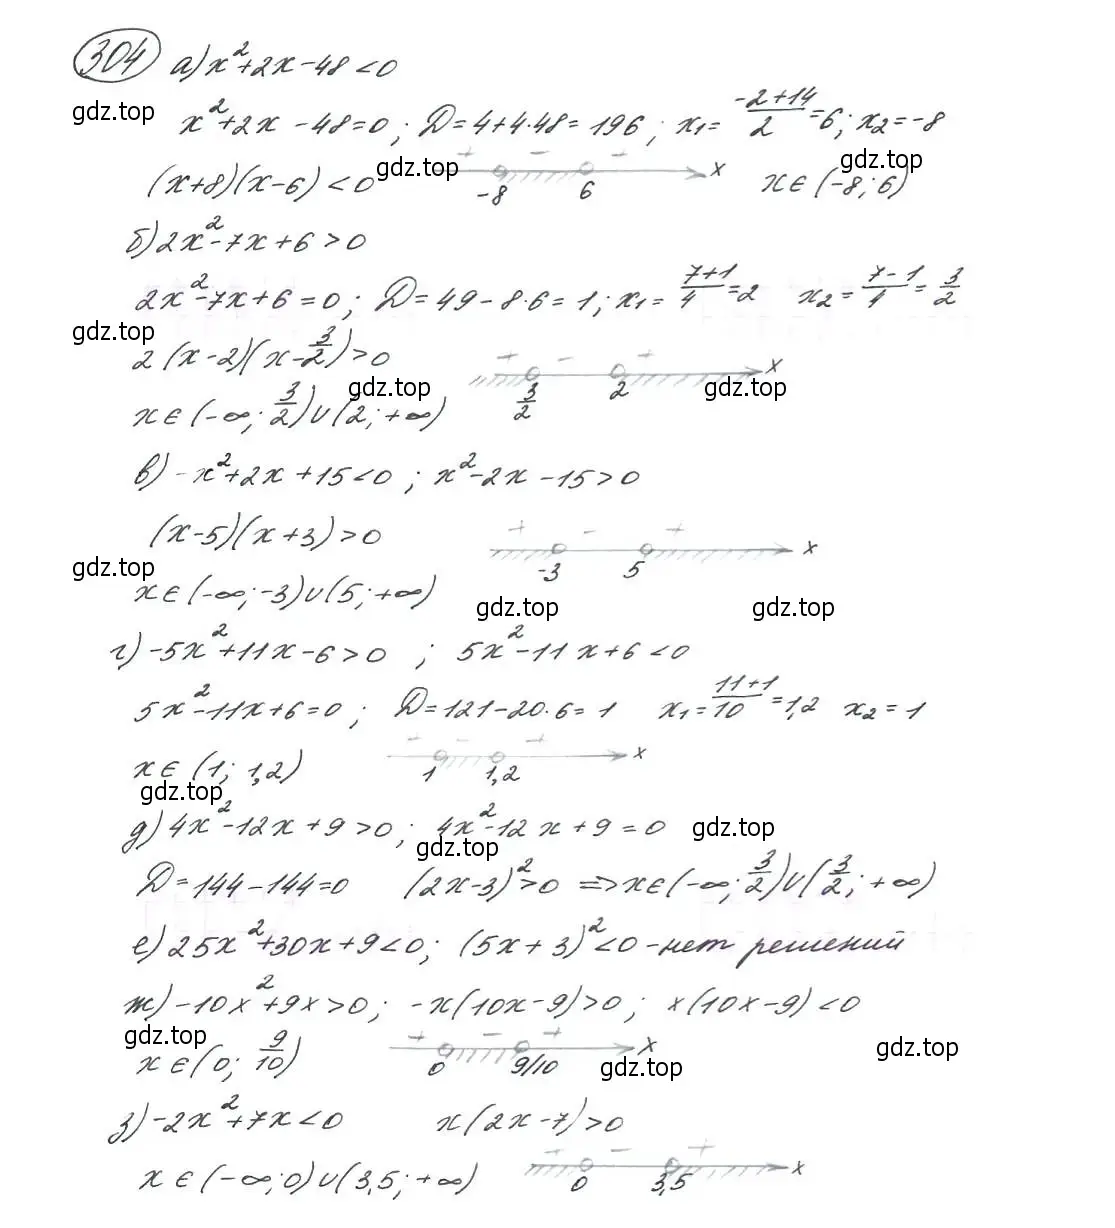 304 а) x²+2x-48<0
gdz.top
x²+2x-48=0; D=4+4·48=196; x₁=(-2+14)/2=6; x₂=-8
gdz.top gdz.top
(x+8)(x-6)<0 + - + -8 6 x x∈(-8; 6)
б) 2x²-7x+6>0
2x²-7x+6=0; D=49-8·6=1; x₁=(7+1)/4=2 x₂=(7-1)/4=3/2
gdz.top
2(x-2)(x-3/2)>0 + - + 3/2 2 x
gdz.top gdz.top
x∈(-∞; 3/2)∪(2; +∞)
в) -x²+2x+15<0; x²-2x-15>0
(x-5)(x+3)>0 + - + -3 5 x
gdz.top
x∈(-∞; -3)∪(5; +∞)
gdz.top gdz.top
г) -5x²+11x-6>0; 5x²-11x+6<0
5x²-11x+6=0; D=121-20·6=1 x₁=(11+1)/10=1,2 x₂=1
x∈(1; 1,2) + - + 1 1,2 x
gdz.top
д) 4x²-12x+9>0; 4x²-12x+9=0 gdz.top
gdz.top
D=144-144=0 (2x-3)²>0 =>x∈(-∞; 3/2)∪(3/2; +∞)
е) 25x²+30x+9<0; (5x+3)²<0 -нет решений
ж) -10x²+9x>0; -x(10x-9)>0; x(10x-9)<0
gdz.top gdz.top
x∈(0; 9/10) + - + 0 9/10 x
gdz.top
з) -2x²+7x<0 x(2x-7)>0
x∈(-∞; 0)∪(3,5; +∞) + - + 0 3,5 x